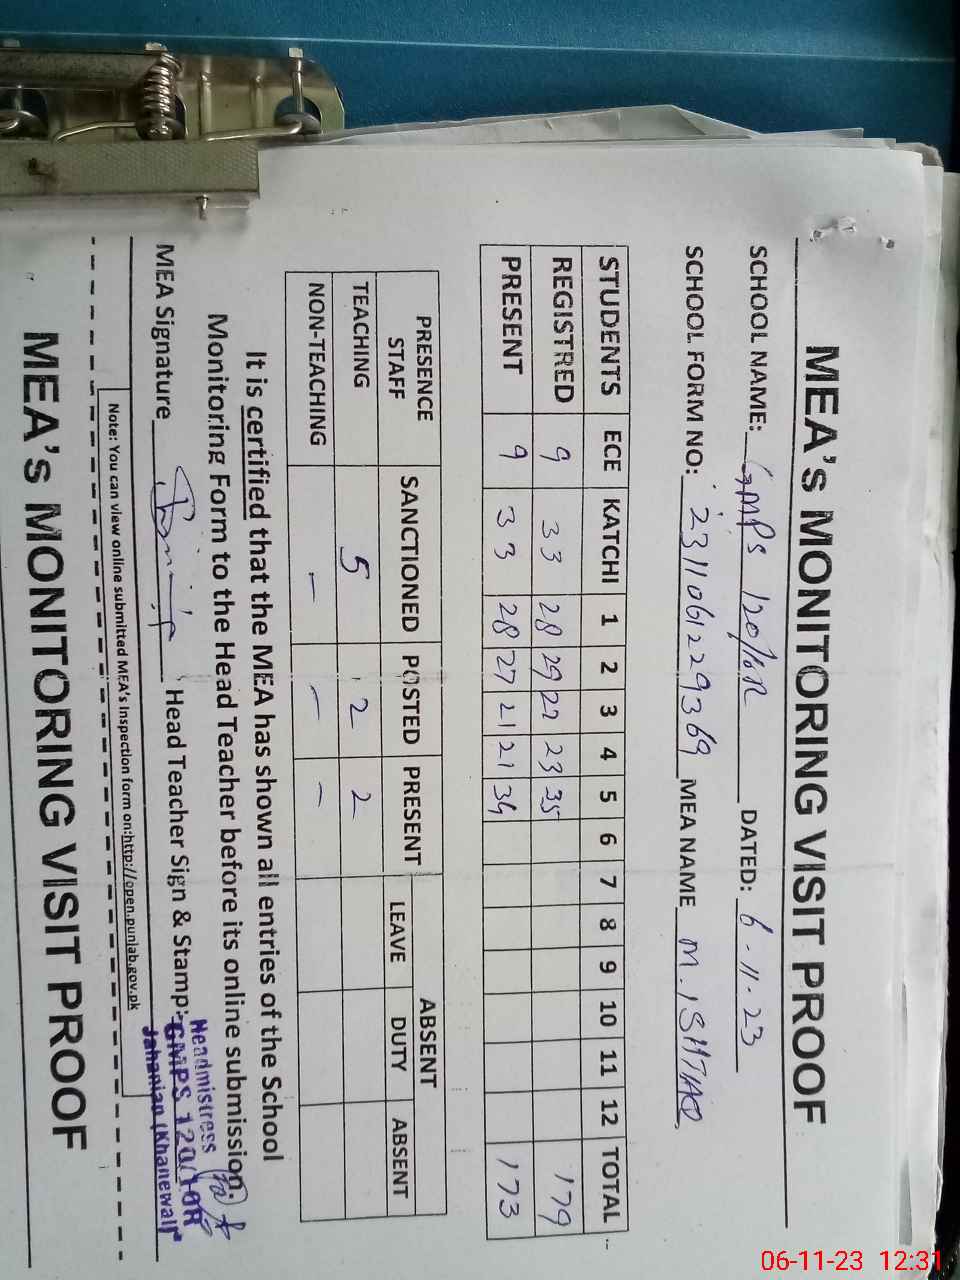 MEA's MONITORING VISIT PROOF
SCHOOL NAME: GMPS 120/10R DATED: 6-11-23
SCHOOL FORM NO: 23110612229369 MEA NAME M. ISHTIAQ
STUDENTS ECE KATCHI 1 2 3 4 5 6 7 8 9 10 11 12 TOTAL
REGISTRED 9 33 28 29 22 23 35 179
PRESENT 9 33 28 27 21 21 34 173
PRESENCE STAFF SANCTIONED POSTED PRESENT ABSENT
LEAVE DUTY ABSENT
TEACHING 5 2 2
NON-TEACHING - - -
It is certified that the MEA has shown all entries of the School
Monitoring Form to the Head Teacher before its online submission.
MEA Signature Head Teacher Sign & Stamp:
Headmistress
GMPS 120/10R
Jahanian (Khanewal)
Note: You can view online submitted MEA's Inspection form on:http://open.punjab.gov.pk
MEA's MONITORING VISIT PROOF
06-11-23 12:31